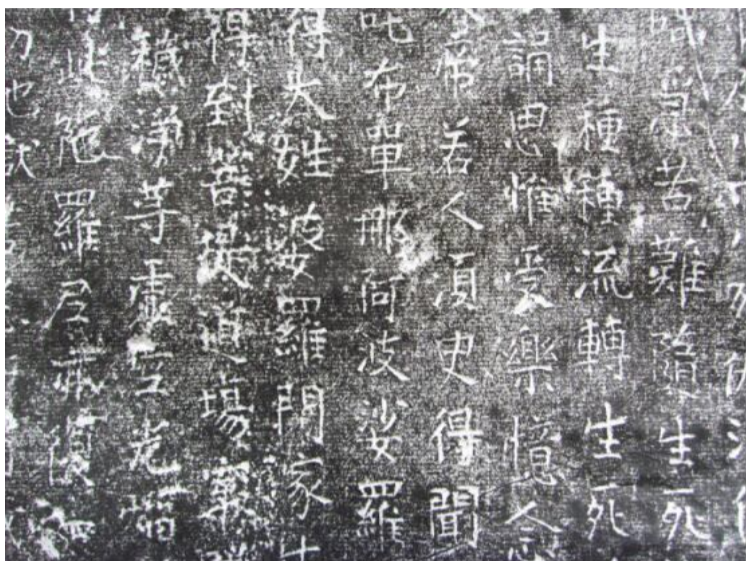 急苦難墮生死
生種種流轉生死
誦思惟愛樂憶念
帝若人須臾得聞
吒布單那阿波娑羅
得大姓婆羅門家
得到菩提道場最
穢淨等虛空光焰
此陀羅尼亦復
地獄